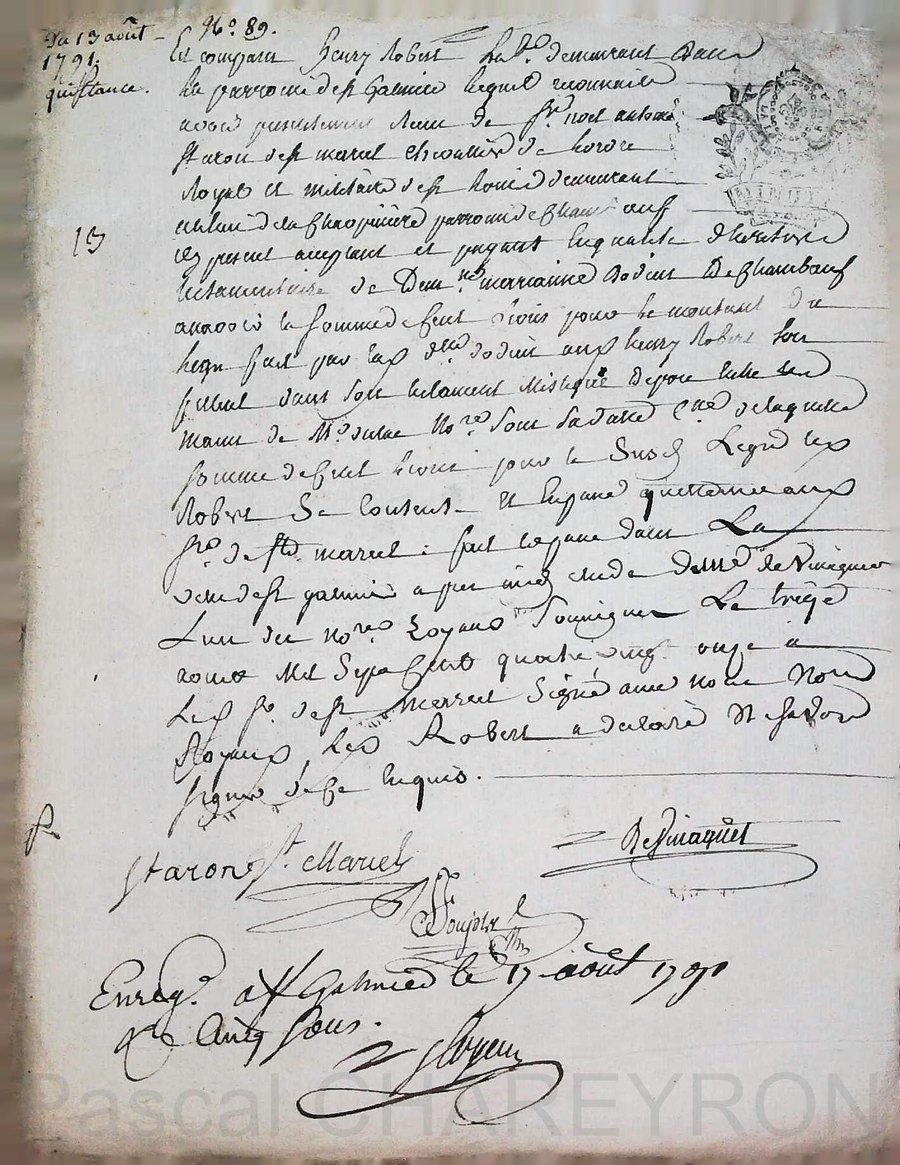 Du 13 août
1791.
quittance.
N.º 89.
Est comparu Henry Robert demeurant dans
la parroisse de St Galmier lequel reconnait
avoir presentement reçu de Sr noel antoine
Staron de St marcel chevallier de Lordre
Royal et militaire de St Louis demeurant
au lieu de la Chaopinière parroisse de Chamboeuf
icy present acceptant et payant en qualité d'heritier
13
testamentaire de Dem.lle marianne Dodieu De Chambeuf
la somme de cent livres pour le montant du
legs fait par lad dlle dodieu aud henry Robert son
filleul dans son testament mistique deposé
mains de Me No.re sous sa datte de laquelle
somme de cent livres pour le susd Legs led
Robert se contente et en passe quittance aud
Sr. de St. marcel : fait et passé dans La
ville de St galmier apres midy etude de Me
L'un des no.res Royaux soussignes Le treize
aoust Mil Sept Cent quatre vingt onze
Led Sr. de St Marcel signé avec nous No.res
Royaux, Led Robert a declaré ne savoir
signer de ce enquis.
Staron St. Marcel
Enreg.é à St Galmier le 17 août 1791
Cinq sous.
Pascal CHAREYRON